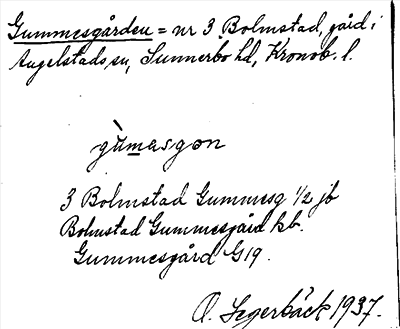 Gummesgården = nr 3 Bolmstad, gård i
Angelstads sn, Sunnerbo hd, Kronob. l.
gùmasgon
3 Bolmstad Gummesg 1/2 jb
Bolmstad Gummesgård kb.
Gummesgård G19.
O. Segerbäck 1937.